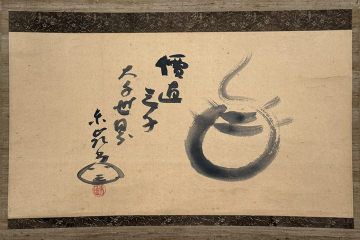 價直
三千
大千世界